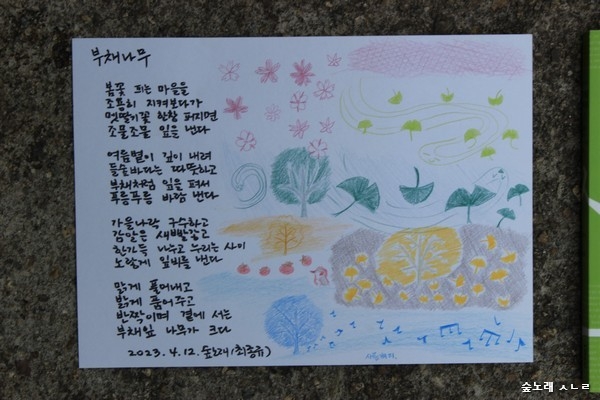 부채나무
봄꽃 피는 마을을
조용히 지켜보다가
멧딸기꽃 한창 퍼지면
조물조물 잎을 낸다
여름볕이 깊이 내려
들숲바다는 따뜻하고
부채처럼 잎을 펴서
푸릉푸릉 바람 낸다
가을나락 구수하고
감알은 새빨갛고
한가득 나누고 누리는 사이
노랗게 잎비를 낸다
맑게 풀어내고
밝게 품어주고
반짝이며 곁에 서는
부채잎 나무가 크다
2023.4.12. 숲노래/최종규)
숲노래 ㅅㄴㄹ